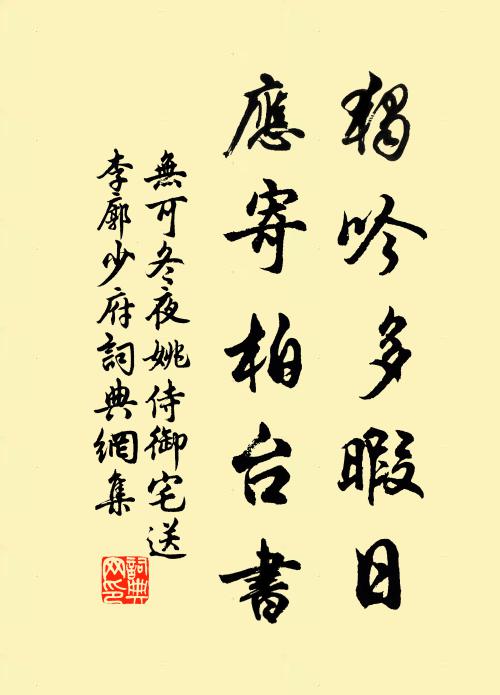 獨吟多暇日
應寄柏台書
無可冬夜姚侍御宅送
李廓少府詞典網集
詞典网印